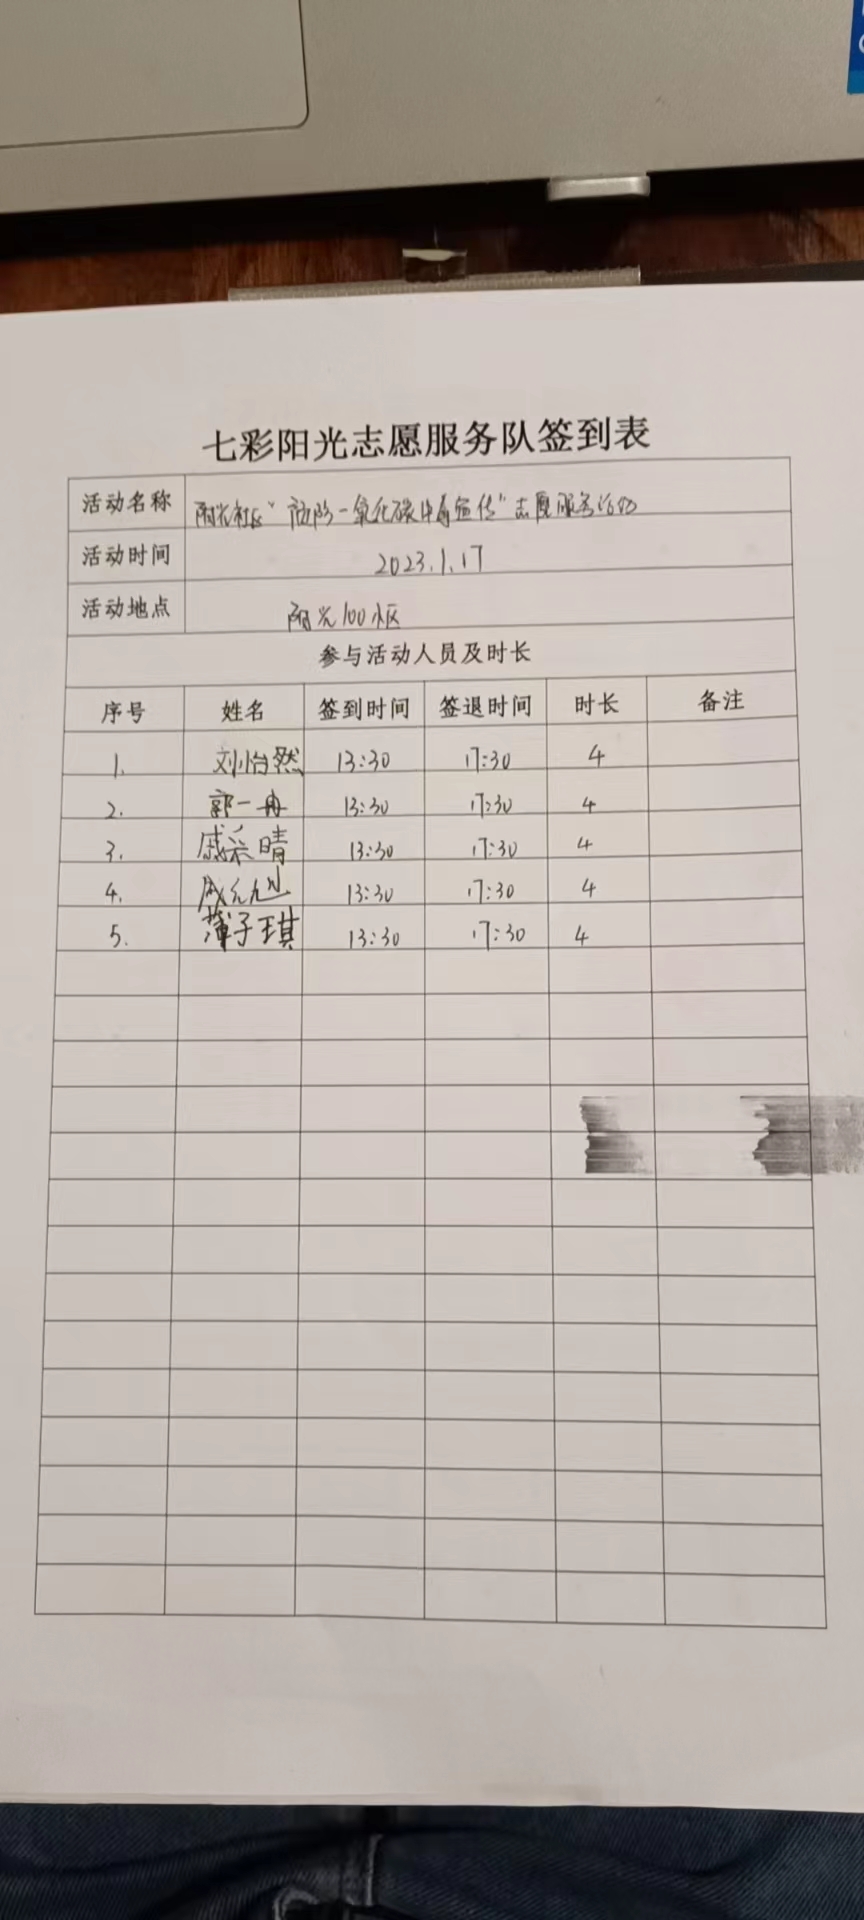 七彩阳光志愿服务队签到表
活动名称 阳光社区“预防一氧化碳中毒宣传”志愿服务活动
活动时间 2023.1.17
活动地点 阳光100小区
参与活动人员及时长
序号 姓名 签到时间 签退时间 时长 备注
1. 刘怡然 13:30 17:30 4
2. 郭一冉 13:30 17:30 4
3. 戚采晴 13:30 17:30 4
4. 13:30 17:30 4
5. 薄子琪 13:30 17:30 4